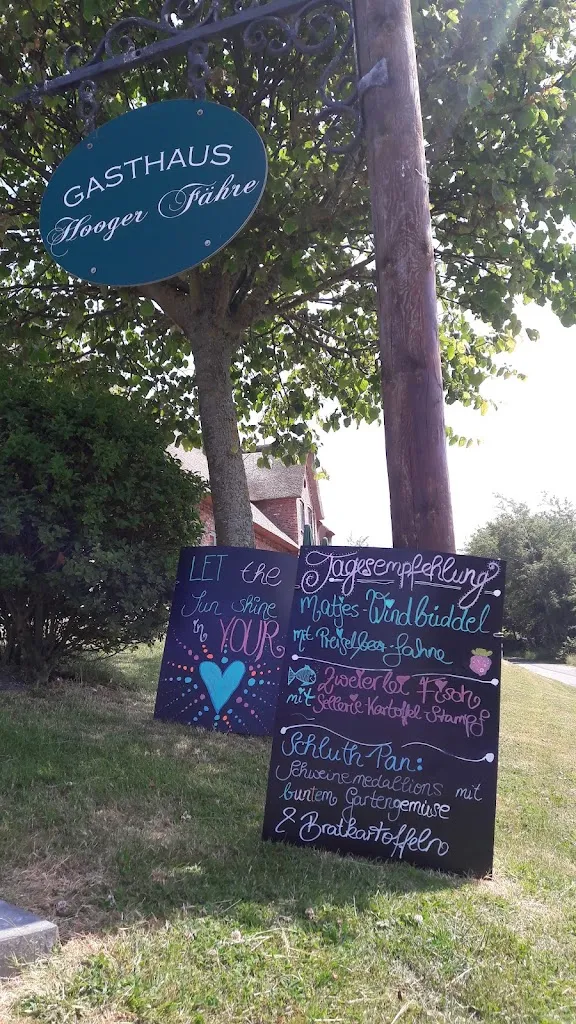 GASTHAUS
Hooger Fähre
LET the
Sun shine
in YOUR
Tagesempfehlung
Matjes-Windbüddel
mit Preiselbeer-Sahne
Zweierlei Fisch
mit Sellerie-Kartoffel-Stampf
Schluth-Pan:
Schweinemedallions mit
buntem Gartengemüse
& Bratkartoffeln